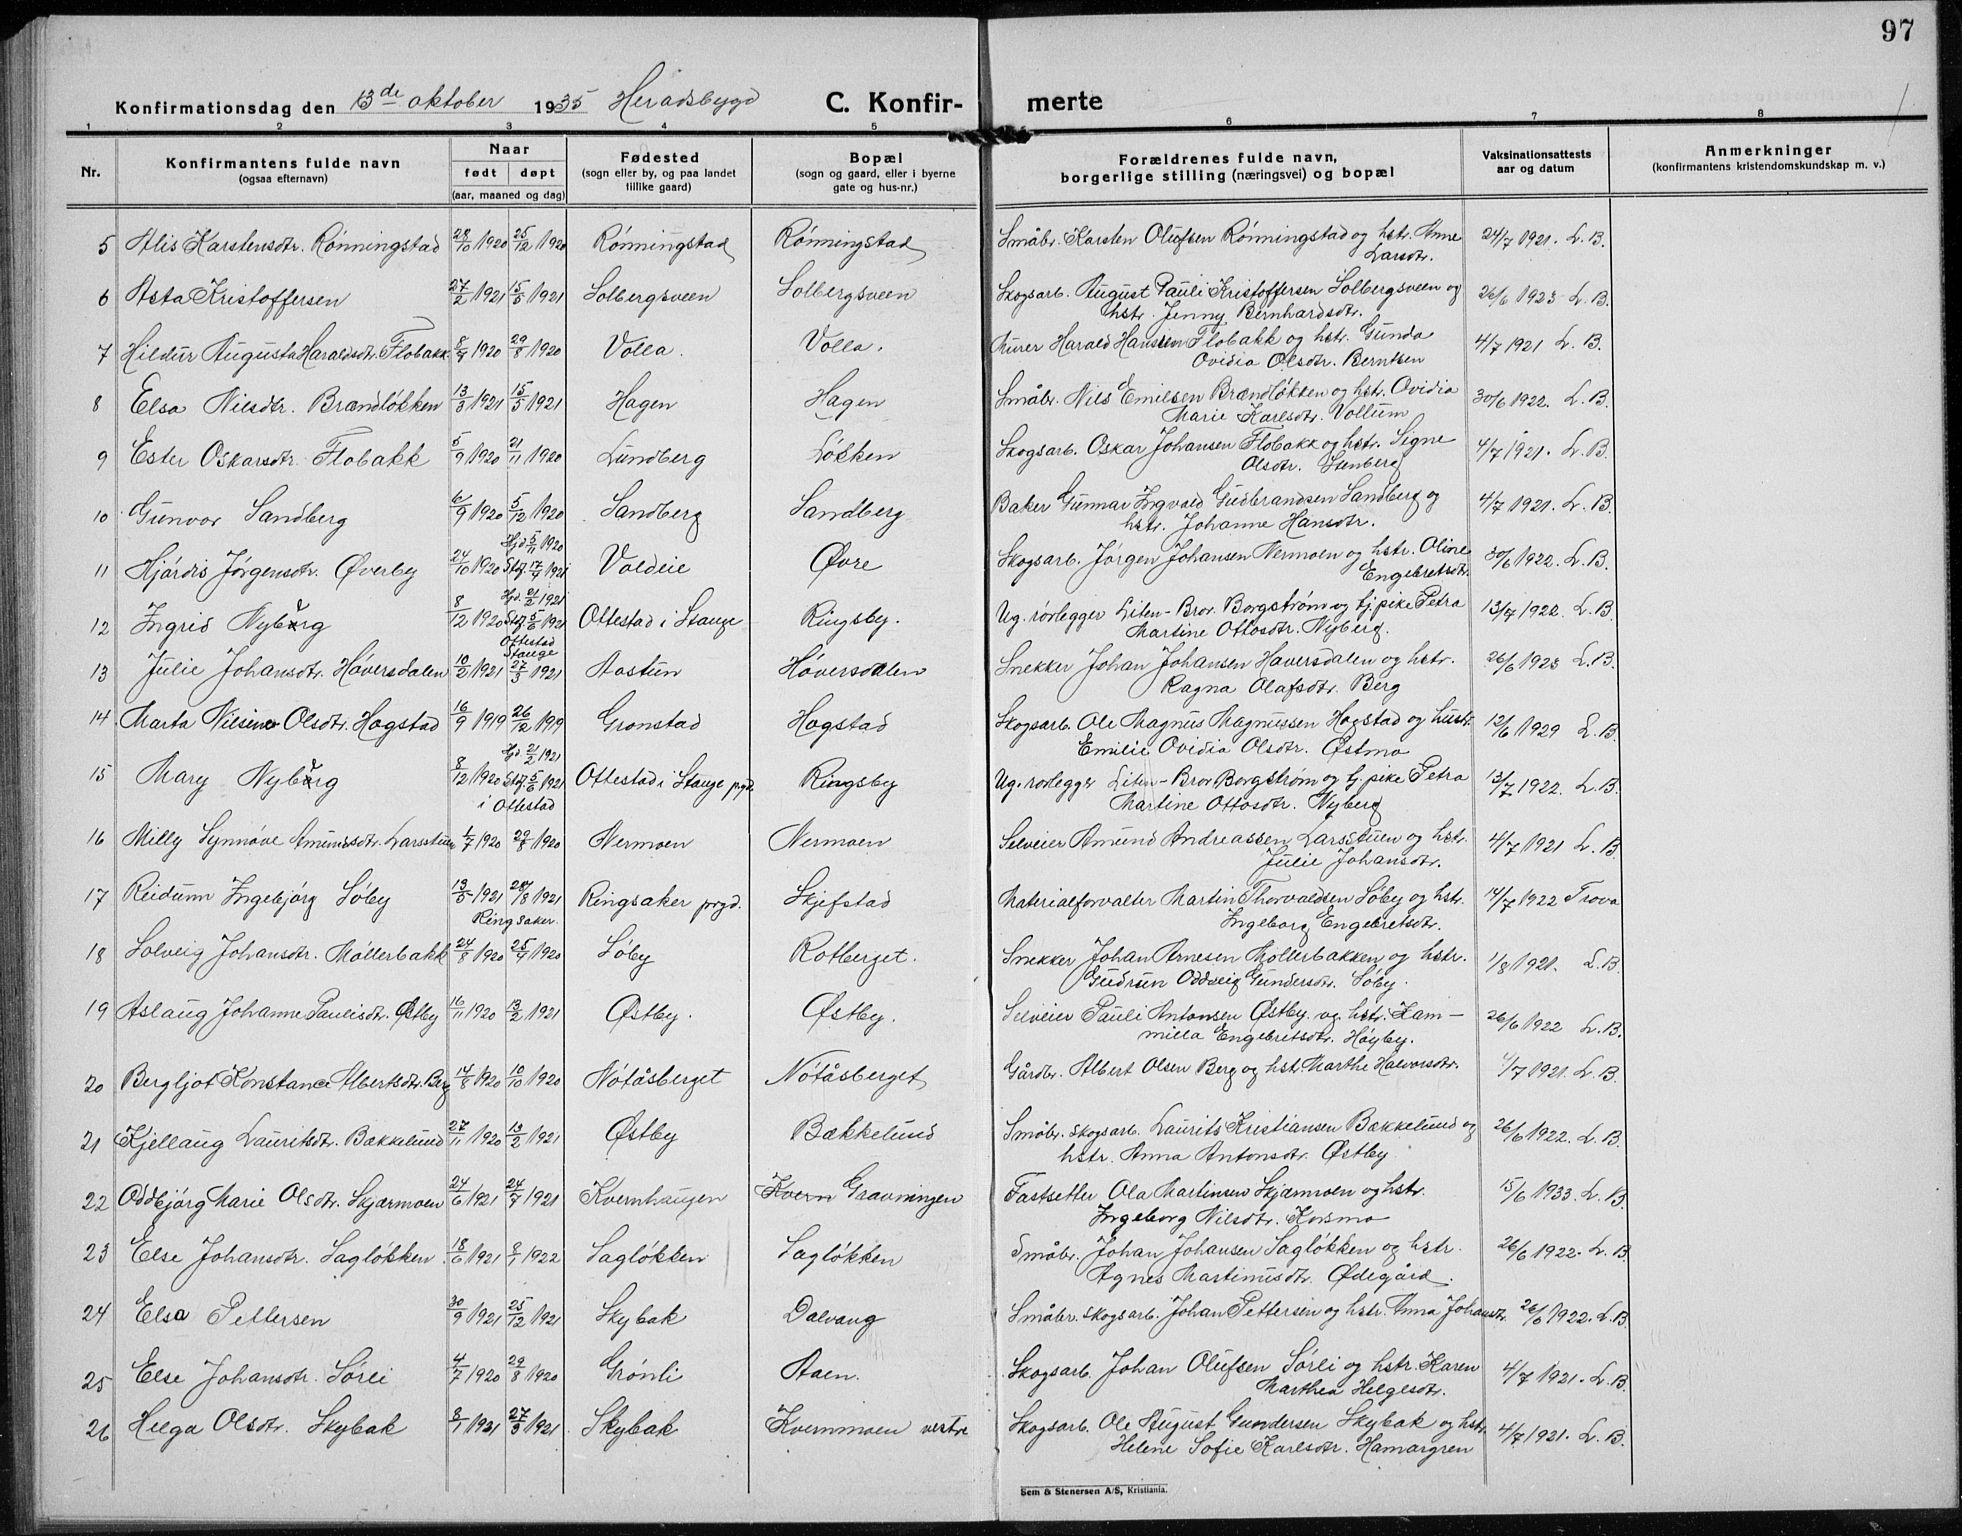 97
Konfirmationsdag den 13de oktober 1935 Heradsbygd C. Konfir- merte
1 2 3 4 5 6 7 8
Nr. Konfirmantens fulde navn (ogsaa efternavn) Naar født døpt (aar, maaned og dag) Fødested (sogn eller by, og paa landet tillike gaard) Bopæl (sogn og gaard, eller i byerne gate og hus-nr.) Forældrenes fulde navn, borgerlige stilling (næringsvei) og bopæl Vaksinationsattests aar og datum Anmerkninger (konfirmantens kristendomskundskap m. v.)
5 Alis Karstensdtr. Rönningstad 28/10 1920 25/12 1920 Rönningstad Rönningstad Småbr. Karsten Olufsen Rönningstad og hstr. Anne 24/7 1921. L.B.
Larsdtr.
6 Asta Kristoffersen 27/2 1921 15/5 1921 Solbergsveen Solbergsveen Skogsarb. August Pauli Kristoffersen Solbergsveen og 26/6 1923 L.B.
hstr. Jenny Bernhardsdtr.
7 Hildur Augusta Haraldsdtr. Flobakk 1920 29/8 1920 Volla. Volla. Murer Harald Hansen Flobakk og hstr. Gunda 4/7 1921 L.B.
Ovidia Olsdtr. Berntsen
8 Elsa Nilsdtr. Brændlökken 13/3 1921 15/5 1921 Hagen Hagen Småbr. Nils Emilsen Brændlökken og hstr. Ovidia 30/6 1922. L.B.
Marie Karlsdtr. Vollum
9 Ester Oskarsdtr. Flobakk 5/9 1920 21/11 1920 Lundberg Lökken Skogsarb. Oskar Johansen Flobakk og hstr. Signe 4/7 1921. L.B.
Olsdtr. Stenberg
10 Gunvor Sandberg 6/9 1920 5/12 1920 Sandberg Sandberg Baker Gunnar Ingvald Gudbrandsen Sandberg og 4/7 1921. L.B.
hstr. Johanne Hansdtr.
11 Hjördis Jörgensdtr. Øverby 24/10 1920 Hjd. 5/11 1920 Stf. 17/4 1921 Voldeie Øvre Skogsarb. Jörgen Johansen Nermoen og hstr. Oline 30/6 1922. L.B.
Engebretsdtr.
12 Ingrid Nyberg 8/12 1920 Hjd. 21/2 1921 Stf. 5/6 1921 Ottestad Stange Ottestad i Stange Ringsby. Ug. rörlegger Liten-Bror Borgström og tj.pike Petra 13/7 1922. L.B.
Martine Ottosdtr. Nyberg.
13 Julie Johansdtr. Höversdalen 10/2 1921 27/3 1921 Aastun Höversdalen Snekker Johan Johansen Haversdalen og hstr. 26/6 1923 L.B.
Ragna Olafsdtr. Berg
14 Marta Nilsine Olsdtr. Hogstad 16/9 1919 26/12 1919 Gronstad Hogstad Skogsarb. Ole Magnus Magnussen Hogstad og hustr. 12/6 1929 L.B.
Emilie Ovidia Olsdtr. Østmo
15 Mary Nyberg 8/12 1920 Hjd 21/2 1921 Stf. 5/6 1921 i Ottestad Ottestad i Stange prgd. Ringsby Ug. rörlegger Liten-Bror Borgström og tj.pike Petra 13/7 1922. L.B.
Martine Ottosdtr. Nyberg
16 Milly Synnöve Amundsdtr. Larsstuen 1/7 1920 29/8 1920 Nermoen Nermoen Selveier Amund Andreassen Larsstuen og hstr. 4/7 1921 L.B.
Julie Johansdtr.
17 Reidunn Ingebjörg Söby 13/5 1921 28/8 1921 Ringsaker. Ringsaker prgd. Skjefstad Materialforvalter Martin Thorvaldsen Söby og hstr. 14/7 1922 Trova
Ingeborg Engebretsdtr.
18 Solveig Johansdtr. Möllerbakk 24/8 1920 25/9 1920 Söby Rotberget. Snekker Johan Arnesen Möllerbakken og hstr. 1/8 1921. L.B.
Gudrun Oddveig Gundersdtr. Söby.
19 Aslaug Johanne Paulisdtr. Østby 16/11 1920 13/2 1921 Østby. Østby. Selveier Pauli Antonsen Østby og hstr. Kam-
milla Engebretsdtr. Höyby. 26/6 1922 L.B.
20 Bergljot Konstance Albertsdtr. Berg 14/8 1920 10/10 1920 Nötåsberget Nötåsberget Gårdbr. Albert Olsen Berg og hstr. Marthe Halvorsdtr. 1/7 1921. L.B.
21 Kjellaug Lauritsdtr. Bækkelund 27/11 1920 13/2 1921 Østby Bækkelund Småbr. skogsarb. Laurits Kristiansen Bækkelund og 26/6 1922. L.B.
hstr. Anna Antonsdtr. Østby
22 Oddbjörg Marie Olsdtr. Skjærmoen 24/6 1921 24/7 1921 Kvernhaugen Kvern Gravningen Fastsetter Ola Martinsen Skjærmoen og hstr. 15/6 1933. L.B.
Ingeborg Nilsdtr. Korsmo
23 Else Johansdtr. Saglökken 18/6 1921 8/1 1922 Saglökken Saglökken Småbr. Johan Johansen Saglökken og hstr. 26/6 1922. L.B.
Agnes Martinusdtr. Ødegård.
24 Elsa Pettersen 30/9 1921 25/12 1921 Skybak Dalvang Småbr. skogsarb. Johan Pettersen og hstr. Anna Johansdtr. 26/6 1922. L.B.
25 Else Johansdtr. Sörli 4/7 1920 29/8 1920 Grönli Aaen. Skogsarb. Johan Olufsen Sörli og hstr. Karen 4/7 1921. L.B.
Marthea Helgesdtr.
26 Helga Olsdtr. Skybak 8/1 1921 27/3 1921 Skybak Kvernmoen vestre Skogsarb. Ole August Gundersen Skybak og hstr. 4/7 1921. L.B.
Helene Sofie Karlsdtr. Hamargren
Sem & Stenersen A/S, Kristiania.